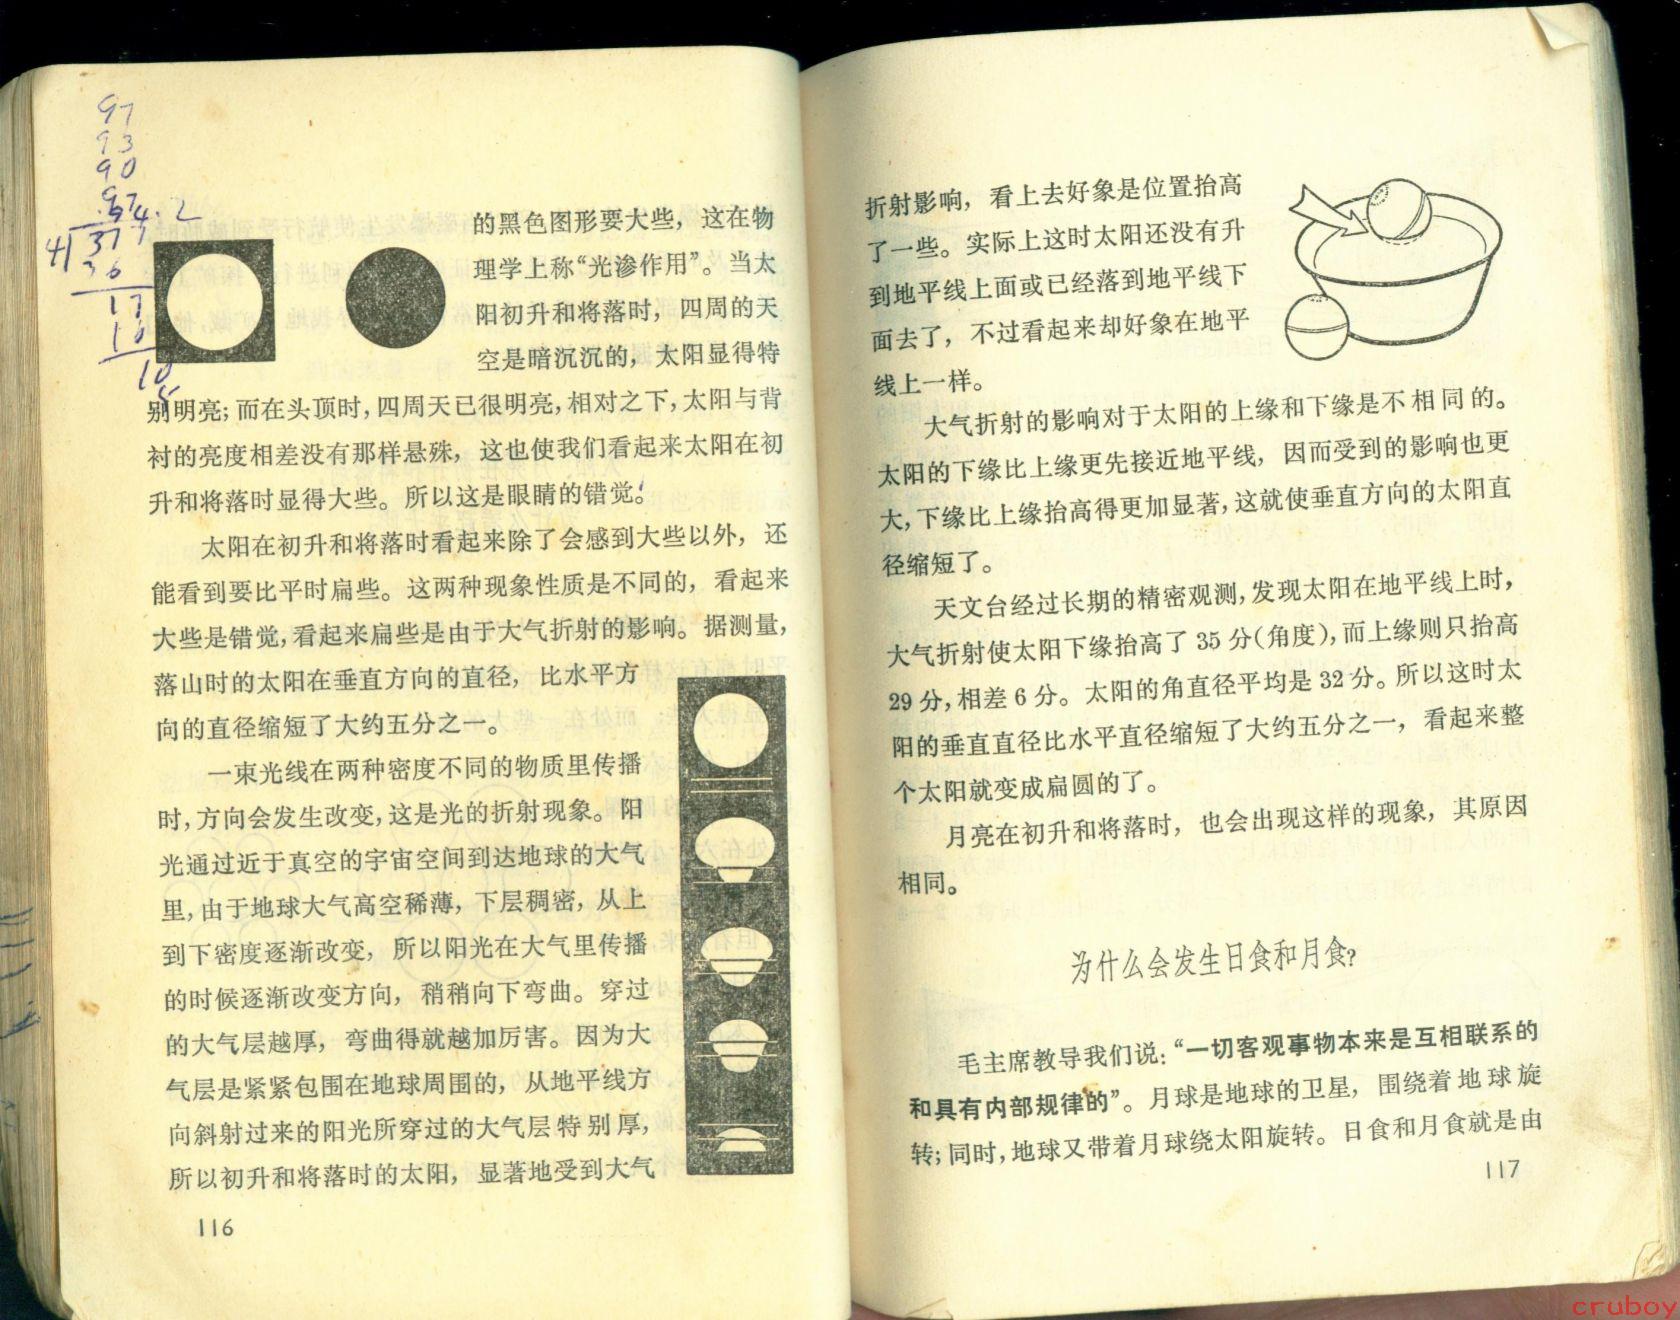 97
93
90
97
94.2
4 377
36
17
16
10
8
的黑色图形要大些，这在物
理学上称“光渗作用”。当太
阳初升和将落时，四周的天
空是暗沉沉的，太阳显得特
别明亮；而在头顶时，四周天已很明亮，相对之下，太阳与背
衬的亮度相差没有那样悬殊，这也使我们看起来太阳在初
升和将落时显得大些。所以这是眼睛的错觉。
太阳在初升和将落时看起来除了会感到大些以外，还
能看到要比平时扁些。这两种现象性质是不同的，看起来
大些是错觉，看起来扁些是由于大气折射的影响。据测量，
落山时的太阳在垂直方向的直径，比水平方
向的直径缩短了大约五分之一。
一束光线在两种密度不同的物质里传播
时，方向会发生改变，这是光的折射现象。阳
光通过近于真空的宇宙空间到达地球的大气
里，由于地球大气高空稀薄，下层稠密，从上
到下密度逐渐改变，所以阳光在大气里传播
的时候逐渐改变方向，稍稍向下弯曲。穿过
的大气层越厚，弯曲得就越加厉害。因为大
气层是紧紧包围在地球周围的，从地平线方
向斜射过来的阳光所穿过的大气层特别厚，
所以初升和将落时的太阳，显著地受到大气
116
折射影响，看上去好象是位置抬高
了一些。实际上这时太阳还没有升
到地平线上面或已经落到地平线下
面去了，不过看起来却好象在地平
线上一样。
大气折射的影响对于太阳的上缘和下缘是不相同的。
太阳的下缘比上缘更先接近地平线，因而受到的影响也更
大，下缘比上缘抬高得更加显著，这就使垂直方向的太阳直
径缩短了。
天文台经过长期的精密观测，发现太阳在地平线上时，
大气折射使太阳下缘抬高了 35 分（角度），而上缘则只抬高
29 分，相差 6 分。太阳的角直径平均是 32 分。所以这时太
阳的垂直直径比水平直径缩短了大约五分之一，看起来整
个太阳就变成扁圆的了。
月亮在初升和将落时，也会出现这样的现象，其原因
相同。
为什么会发生日食和月食？
毛主席教导我们说：“一切客观事物本来是互相联系的
和具有内部规律的”。月球是地球的卫星，围绕着地球旋
转；同时，地球又带着月球绕太阳旋转。日食和月食就是由
117
cruboy